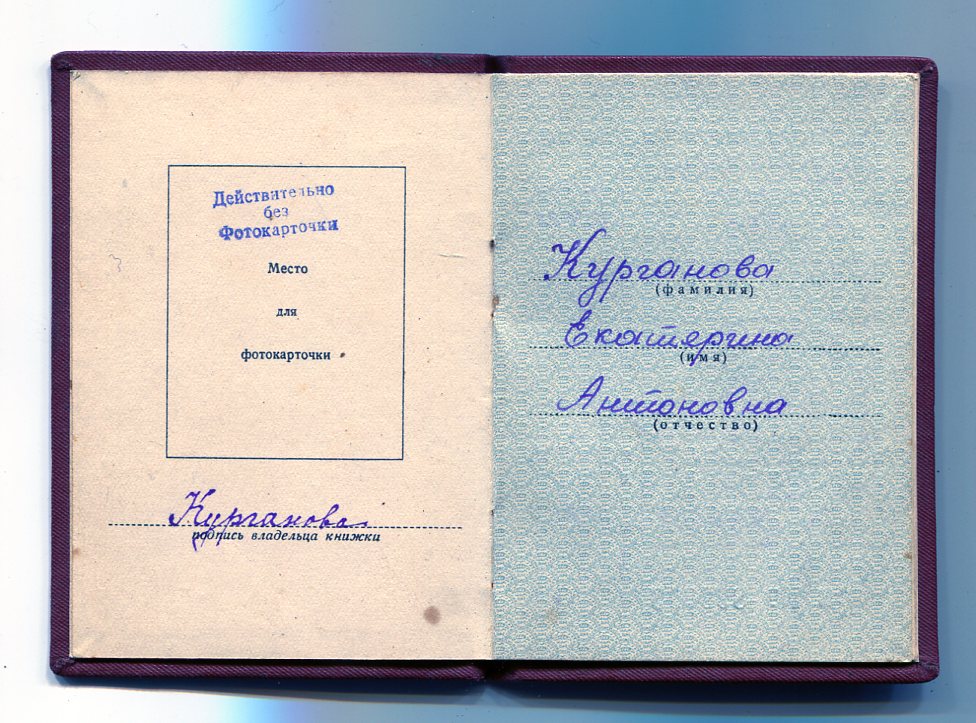 Действительно
без
Фотокарточки
Место
для
фотокарточки
Курганова
подпись владельца книжки
Курганова
(фамилия)
Екатерина
(имя)
Антоновна
(отчество)